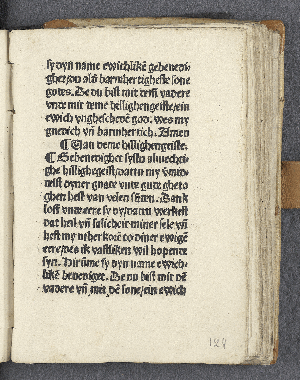 sy dyn name ewichlikē gebenedi-
ghet gon alū barmhertigheste sone
godes. De du bist mit dessē vadere
vnde mit deme hillighengeiste/ein
ewich vnghescheidē god. wes my
gnedich vñ barmhertich. Amen
¶ Uan deme hillighengeiste.
¶ Gebenediget systu alweldi-
ghe hillighegeist/wattu my vmme
dyner gnade vnte gude ghego
ghen hest van velen sunden. Dank
loff vnde ere sy dy/dattu werkest
dat heil vñ salicheit miner sele vñ
hest my vtherkorē to diner ewigē
ere/des ik vastliken wil hopende
syn. Hir vme sy dyn name ewich-
likē benediget. De du bist mit dē
vadere vñ mit dē sone/ein ewich
128